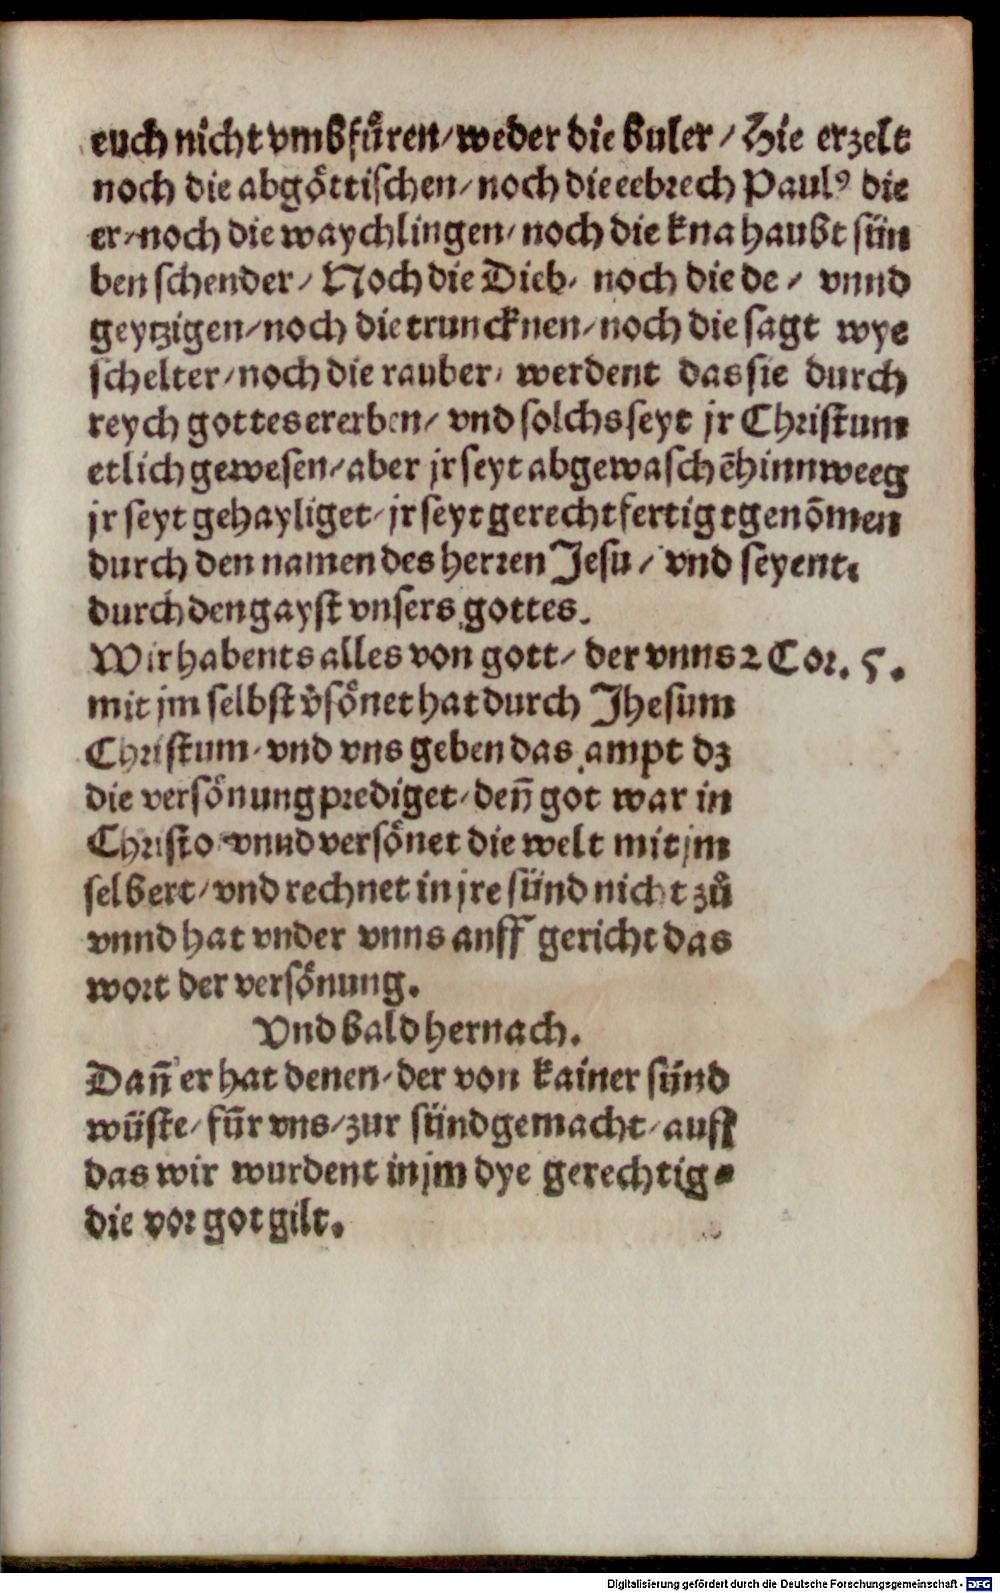 euch nicht vmbfüren/ weder die buler/ Hie erzelt
noch die abgöttischen/ noch die eebrech Paulꝰ die
er/ noch die waychlingen/ noch die kna haubt sün
ben schender/ Noch die Dieb/ noch die de/ vnnd
geytzigen/ noch die truncknen/ noch die sagt wye
schelter/ noch die rauber/ werdent das sie durch
reych gottes ererben/ vnd solchs seyt jr Christum
etlich gewesen/ aber jr seyt abgewaschē hinnweeg
jr seyt gehayliget/ jr seyt gerechtfertigt genōmen
durch den namen des herren Jesu/ vnd seyent.
durch den gayst vnsers gottes.
Wir habents alles von gott/ der vnns 2 Cor. 5.
mit jm selbst v̄sönet hat durch Jhesum
Christum/ vnd vns geben das ampt dz
die versönung prediget/ deñ got war in
Christo vnnd versönet die welt mit jm
selbert/ vnd rechnet in jre sünd nicht zů
vnnd hat vnder vnns auff gericht das
wort der versönung.
Vnd bald hernach.
Dañ er hat denen/ der von kainer sünd
wüste/ für vns/ zur sünd gemacht/ auff
das wir wurdent in jm dye gerechtig-
die vor got gilt.
Digitalisierung gefördert durch die Deutsche Forschungsgemeinschaft - DFG